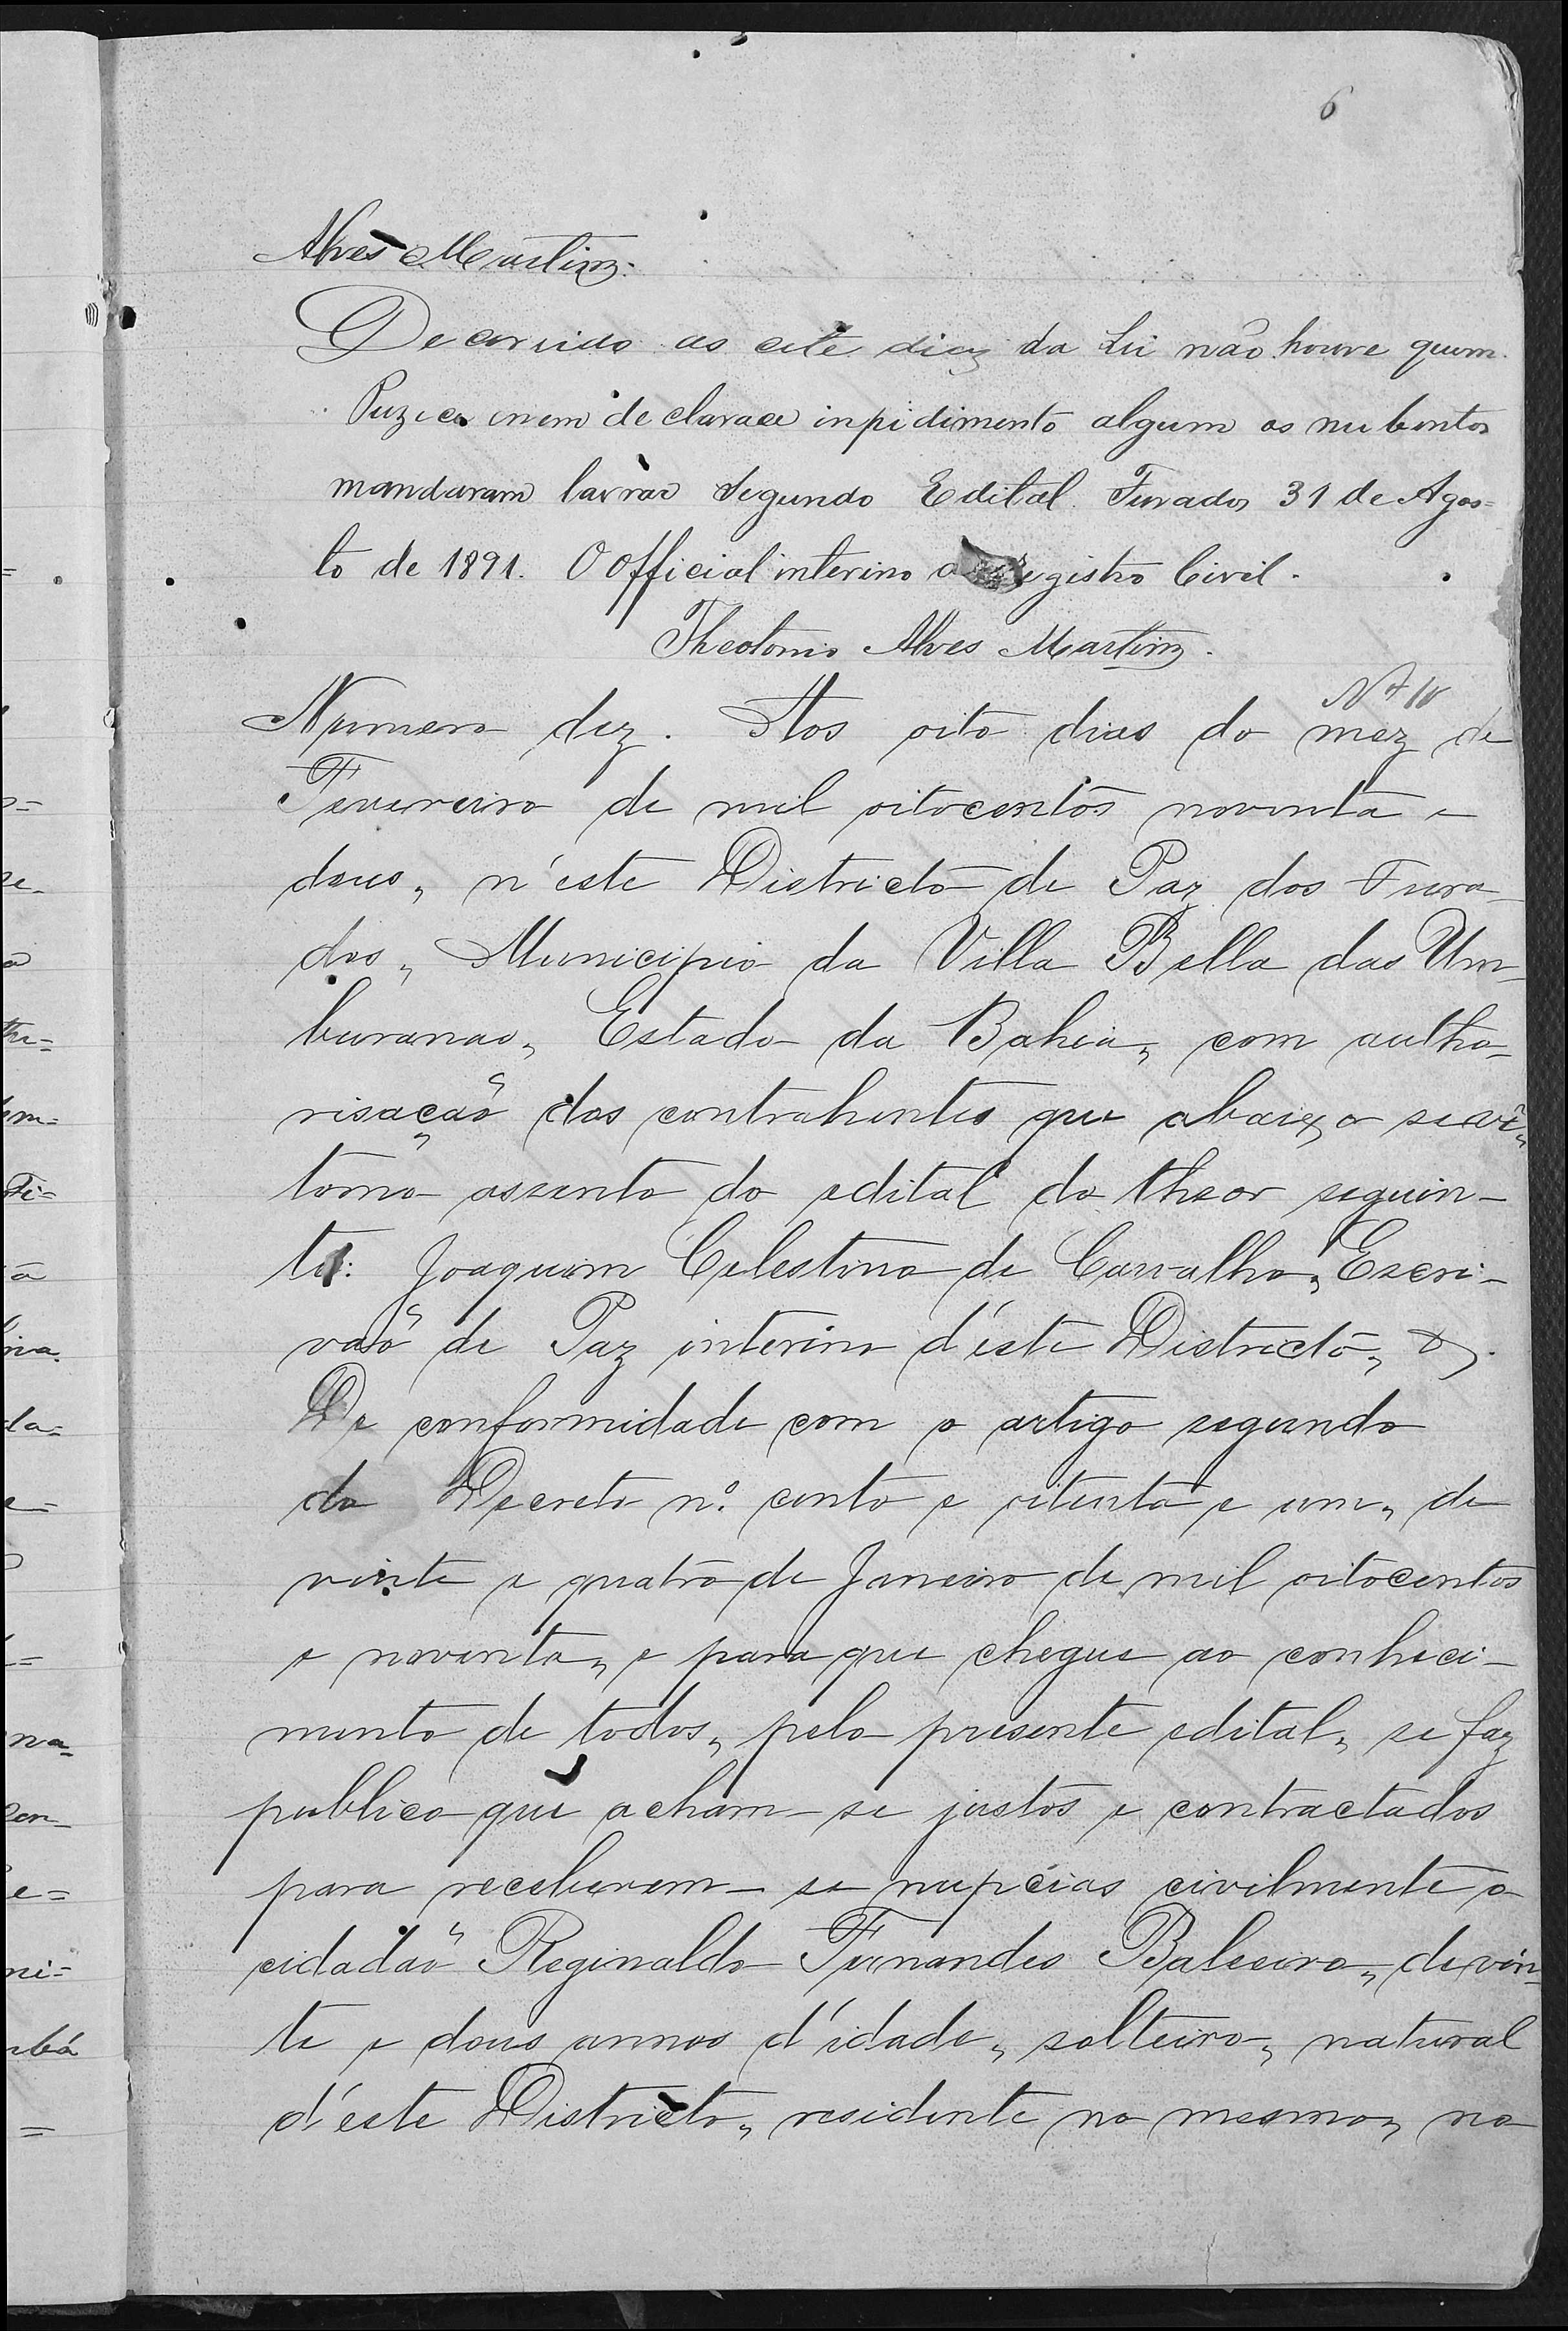 6
Alves Martins.
Decorrido os cete dias da Lei não houve quem
Puzece nem declarace inpidimento algum os nubentes
mandaram lavrar Segundo Edital. Furados 31 de Agos=
to de 1891. O Official interino do Registro Civil.
Theotonio Alves Martins.
Nº 10
Numero dez. Aos oito dias do mez de
Fevereiro de mil oitocentos noventa e
dous, n'este Districto de Paz dos Fura-
dos, Municipio da Villa Bella das Um-
buranas, Estado da Bahia, com autho-
risação dos contrahentes que abaixo se vê,
tomo assento do edital do theor seguin-
te: Joaquim Celestino de Carvalho, Escri-
vão de Paz interino d'este Districto, &.
De conformidade com o artigo segundo
do Decreto nº. cento e oitenta e um, de
vinte e quatro de Janeiro de mil oitocentos
e noventa, e para que chegue ao conheci-
mento de todos, pelo presente edital, se faz
publico que acham-se justos e contractados
para receberem-se nupcias civilmente o
cidadão Reginaldo Fernandes Baleeiro, de vin-
te e dous annos d'idade, solteiro, natural
d'este Districto, residente no mesmo, no